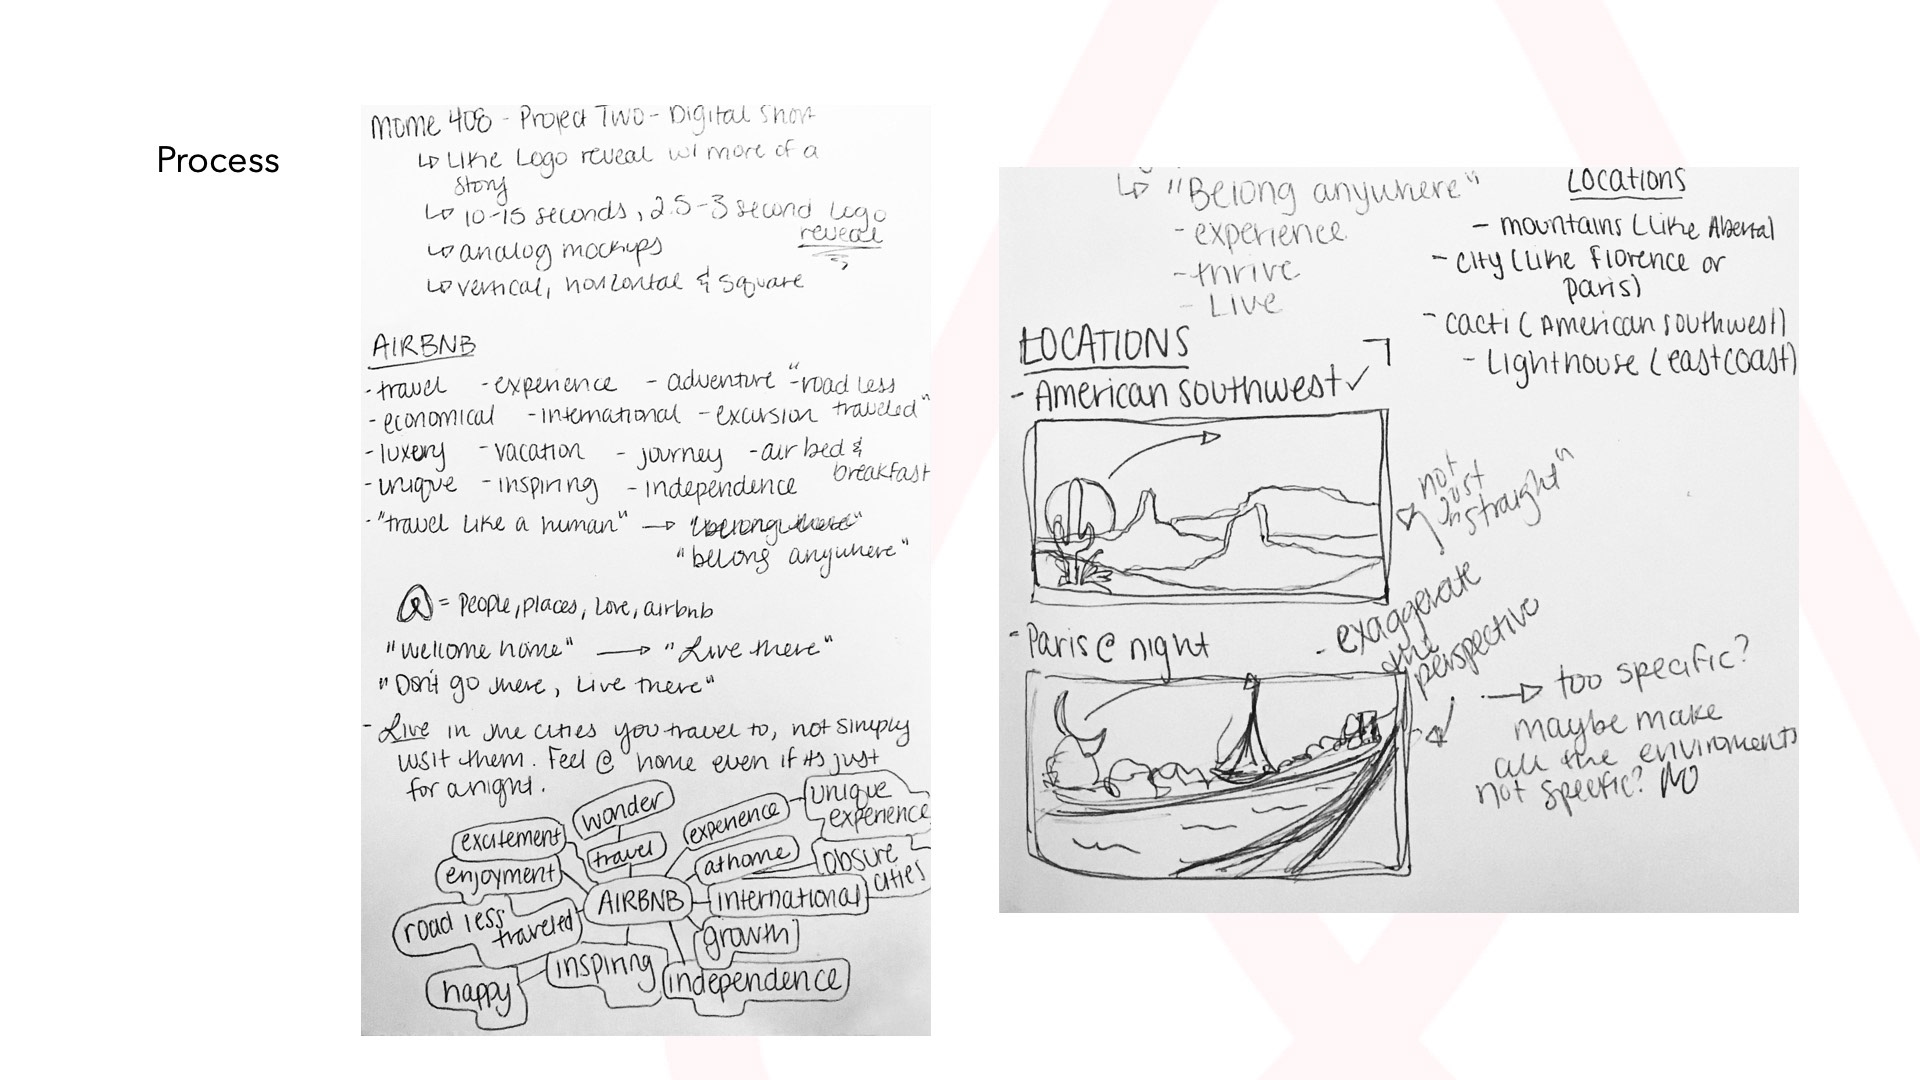 Process
MOME 408 - Project Two - Digital Short
↳ Like Logo reveal w/ more of a
story
↳ 10-15 seconds, 2.5-3 second logo
reveal
↳ analog mockups
↳ vertical, horizontal & square
AIRBNB
- travel - experience - adventure - "road less
traveled"
- economical - international - excursion
- luxery - vacation - journey - air bed &
breakfast
- unique - inspiring - independence
- "travel like a human" → "belong there"
"belong anywhere"
= People, places, love, airbnb
"welcome home" → "Live there"
"Don't go there, Live there"
- Live in the cities you travel to, not simply
visit them. Feel @ home even if its just
for a night.
wonder
unique
experience
excitement
experience
travel
at home
obsure
cities
enjoyment
AIRBNB
international
road less
traveled
growth
inspiring
independence
happy
↳ "Belong anywhere"
- experience
- thrive
- Live
Locations
- mountains (like Alberta)
- city (like Florence or
Paris)
- cacti (American southwest)
- Lighthouse (east coast)
LOCATIONS
- American southwest ✓
not
just
"straight"
- Paris @ night
- exaggerate
the
perspective
→ too specific?
maybe make
all the enviroments
not specific? NO